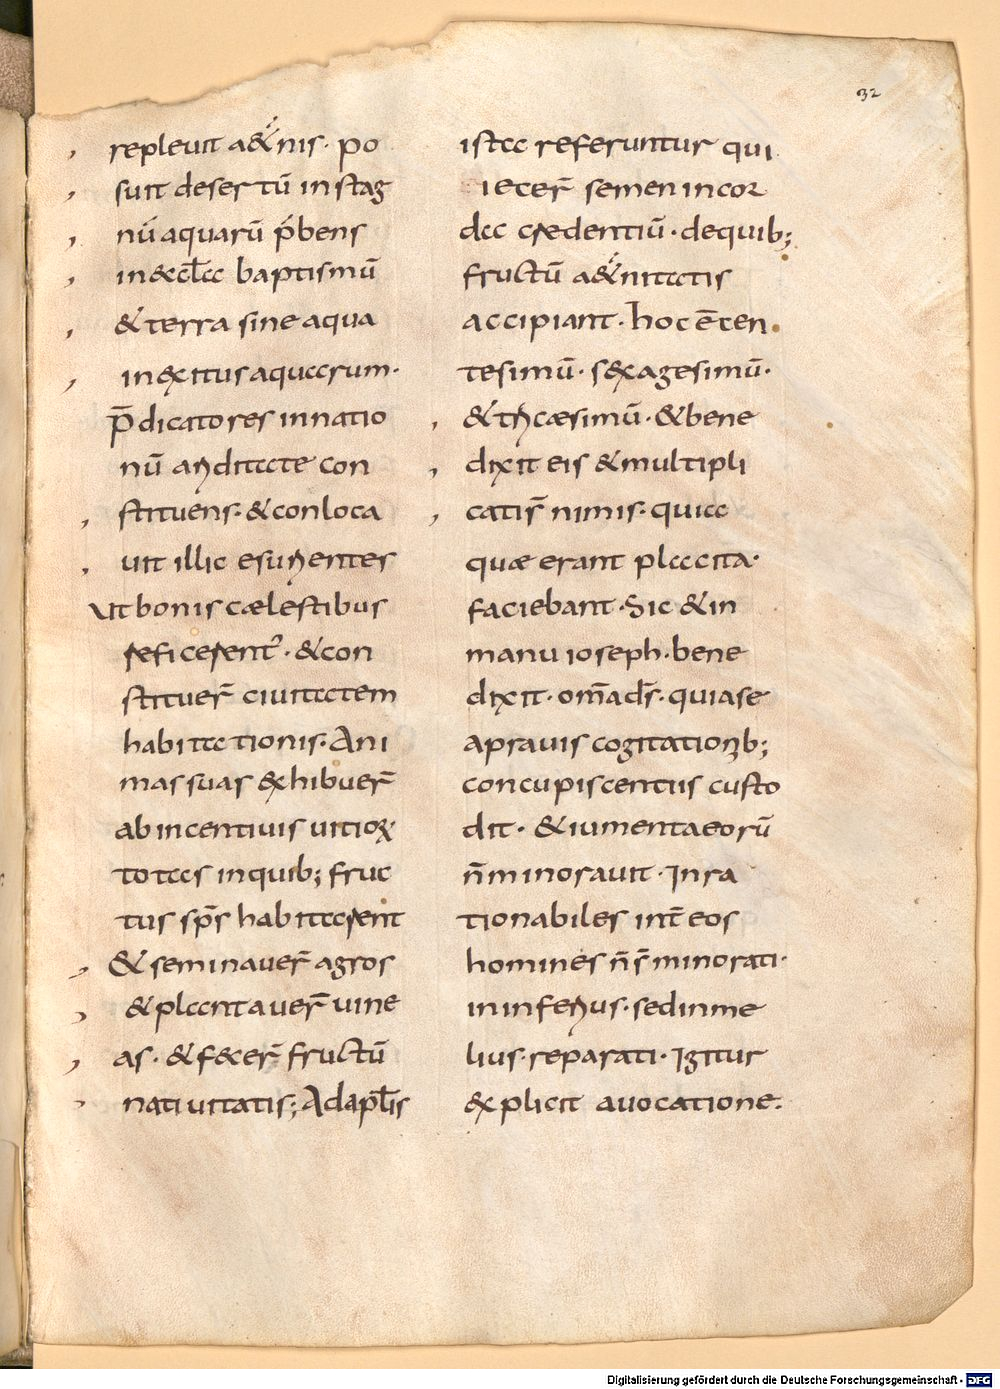 32
repleuit a&́nis· po
suit desertū in stag
nū aquarū p̄bens
in&ccl̄a baptismū
& terra sine aqua
in&xitus aquarum·
p̄dicatores in natio
nū auriditate con
stituens· & conloca
uit illic esurientes
Ut bonis cælestibus
reficerent᷑· & con
stituer̄ ciuitatem
habitationis· Ani
mas suas exhibuer̄
ab incentiuis uitioꝝ
totas in quib; fruc
tus sp̄s habitarent
& seminauer̄ agros
& plantauer̄ uine
as· & fecer̄ fructū
natiuitatis; Ad ap̄lis
ista referuntur qui
iecer̄ semen in cor
da credentiū· de quib;
fructū a&́nitatis
accipiant· hoc ē cen
tesimū· sexagesimū·
& tricæsimū· & bene
dixit eis & multipli
cati s̄ nimis· quia
quæ erant placita·
faciebant· Sic & in
manu ioseph· bene
dixit· om̄a d̄s· quia se
a prauis cogitationib;
concupiscentiis custo
dit· & iumenta eorū
n̄ minorauit· Inra
tionabiles int̄ eos
homines n̄ s̄ minorati·
in inferius· sed in me
lius· reparati· Igitur
explicit auocatione·
Digitalisierung gefördert durch die Deutsche Forschungsgemeinschaft - DFG